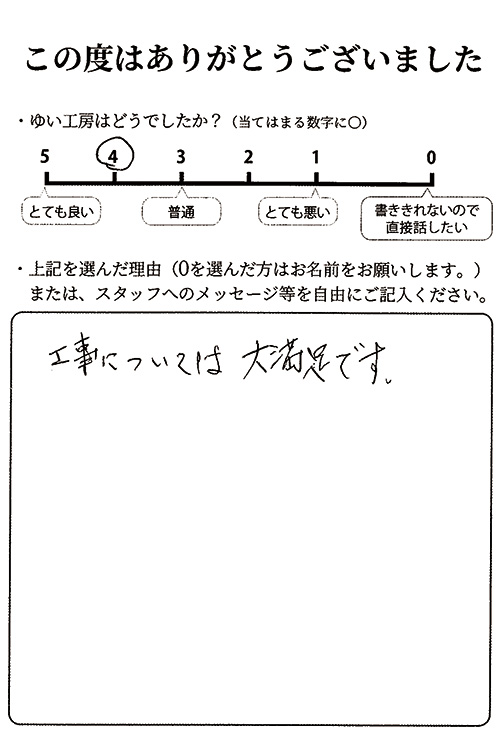 この度はありがとうございました
・ゆい工房はどうでしたか？（当てはまる数字に〇）
5 4 3 2 1 0
とても良い 普通 とても悪い 書ききれないので
直接話したい
・上記を選んだ理由（0を選んだ方はお名前をお願いします。）
または、スタッフへのメッセージ等を自由にご記入ください。
工事については 大満足です。